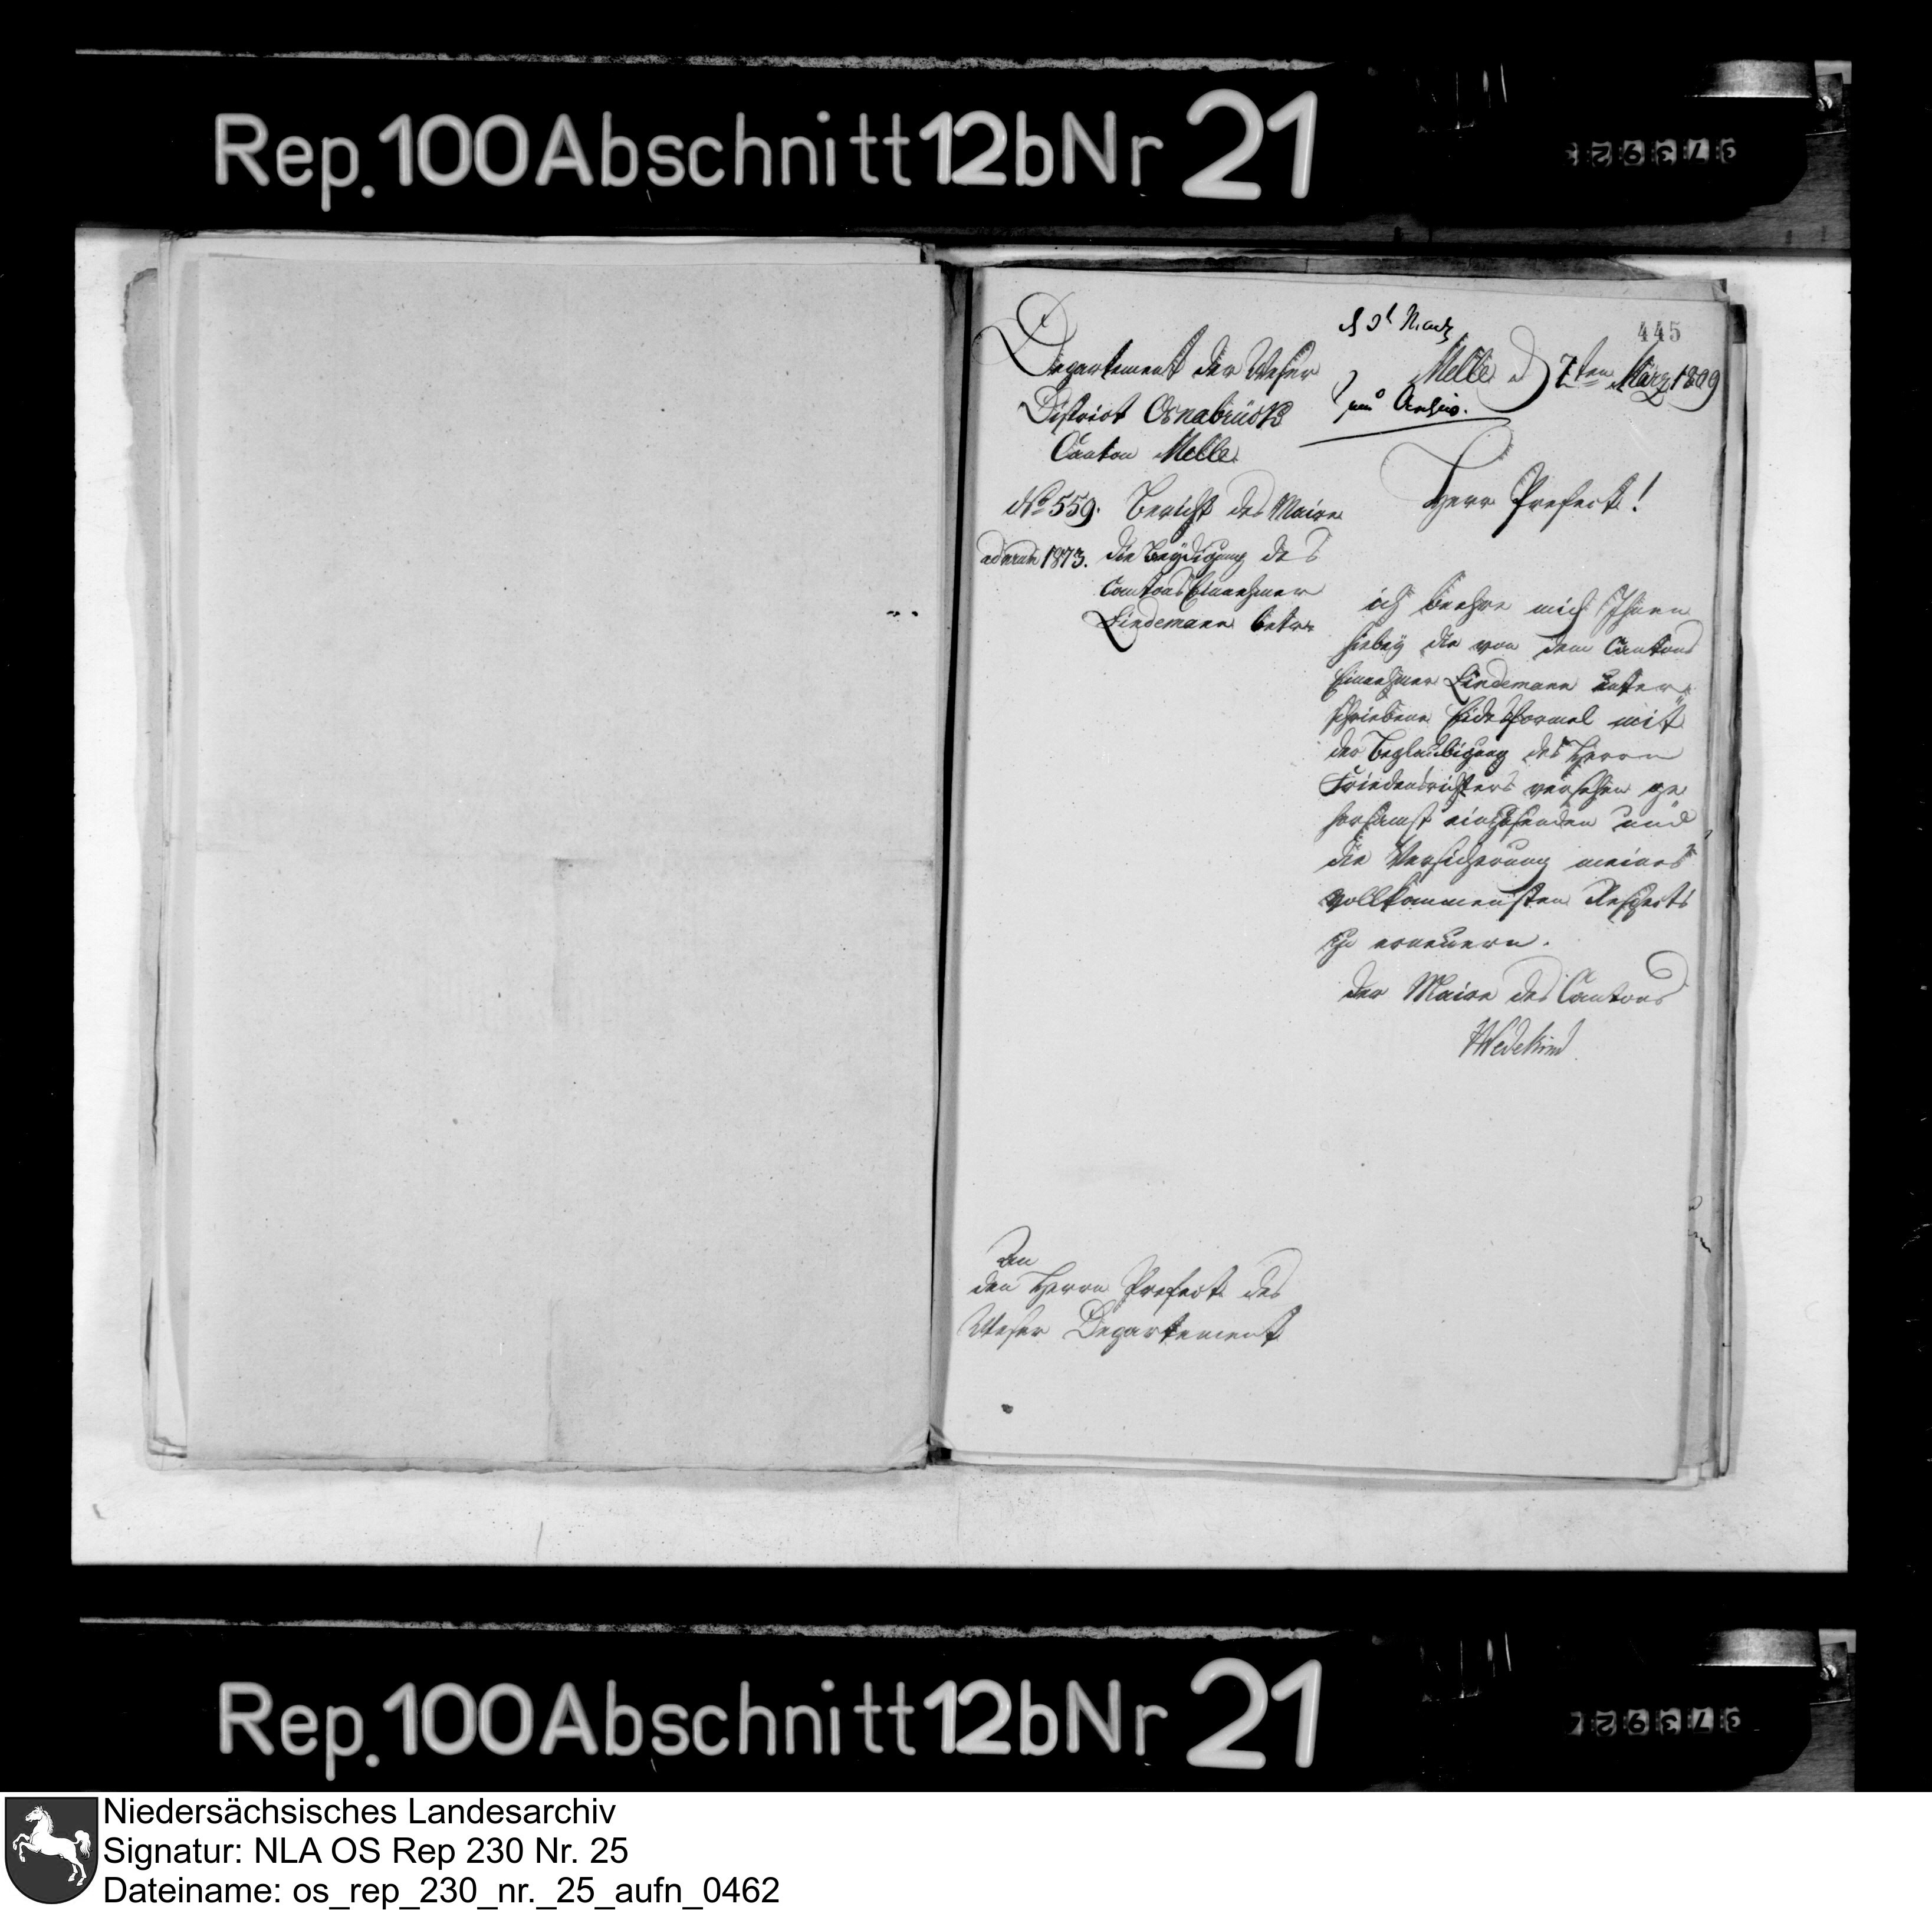 Rep. 100 Abschnitt 12b Nr 21
445
Departement der Weser
District Osnabrück
Canton Melle
Melle d 7ten März 1809
No 559. Bericht des Maire
ad num 1873. die Beeydigung des
Cantons Einnehmer
Lindemann betr.
Herr Prefect!
ich beehre mich Ihnen
hiebey die von dem Cantons
Einnehmer Lindemann unter¬
schriebene Eidesformel mit
der Beglaubigung des Herrn
Friedensrichters versehen ge
horsamst einzusenden und
die Versicherung meines
vollkommensten Respects
zu erneuern.
der Maire des Cantons
Wedekind
An
den Herrn Prefect des
Weser Departement
Rep. 100 Abschnitt 12b Nr 21
Niedersächsisches Landesarchiv
Signatur: NLA OS Rep 230 Nr. 25
Dateiname: os_rep_230_nr._25_aufn_0462